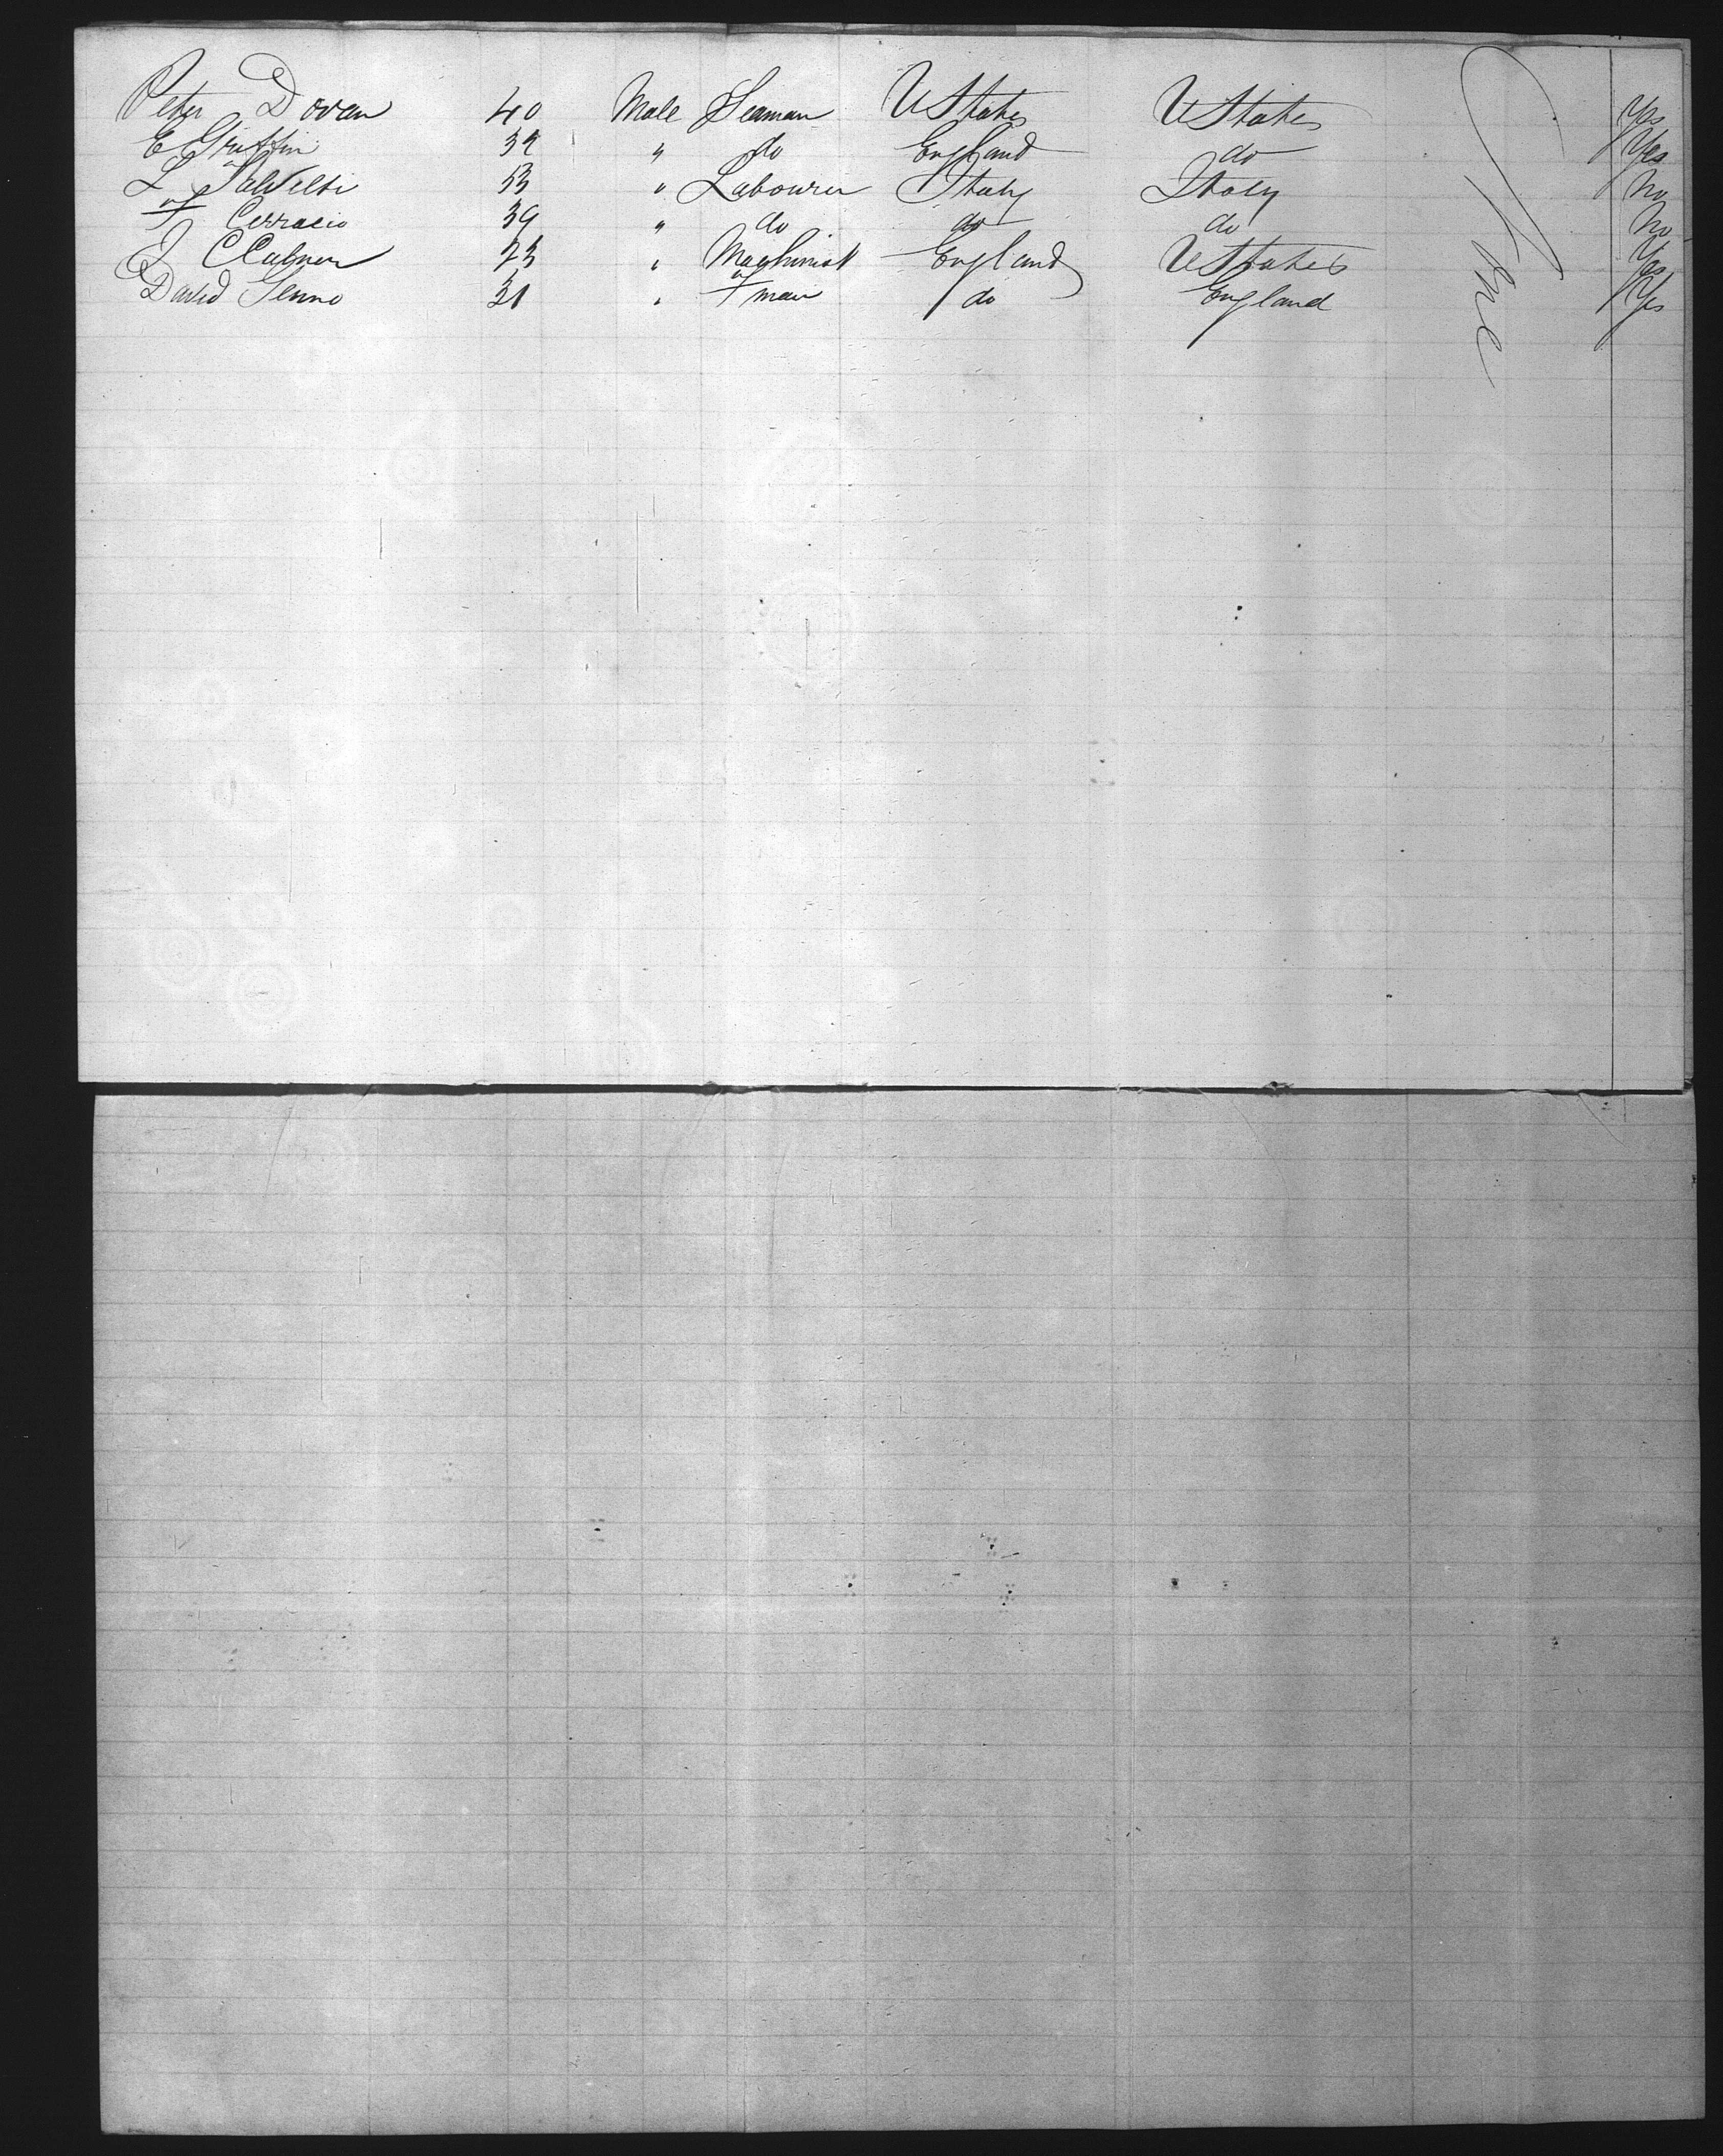 Peter Doran 40 Male Seaman UStates UStates Yes
E Griffin 32 " do England do Yes
L Salvelti 53 " Labourer Italy Italy No
F Cerracio 39 " do do do No
J 23 " Machinist England UStates Yes
David 31 " F man do England Yes